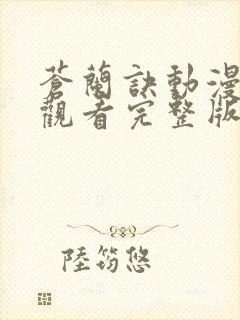 蒼蘭訣動漫
觀看完整版
陸筠悠